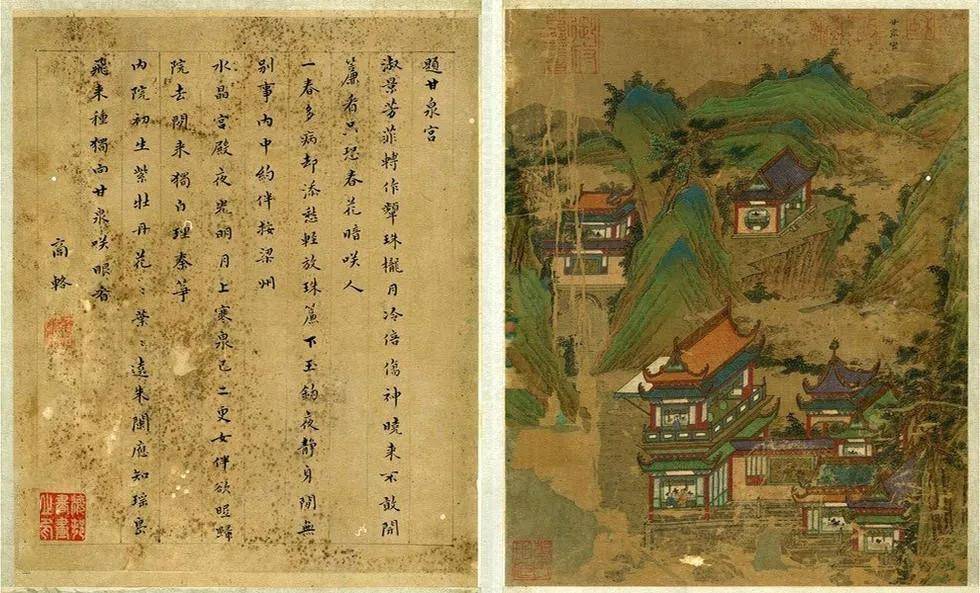 題甘泉宮
淑景芳菲轉作顰珠攏月冷倍傷神曉来不敢開
簾看只恐春花暗咲人
一春多病却添愁輕放珠簾下玉鈎夜靜身閒無
別事内中約伴按梁州
水晶宮殿夜光明月上寒泉已二更女伴欲眠歸
院去閒来獨自理秦箏
内院初生紫牡丹花〻葉〻遶朱闌應知瑶島
飛来種獨向甘泉咲眼看
商輅
甘泉宮